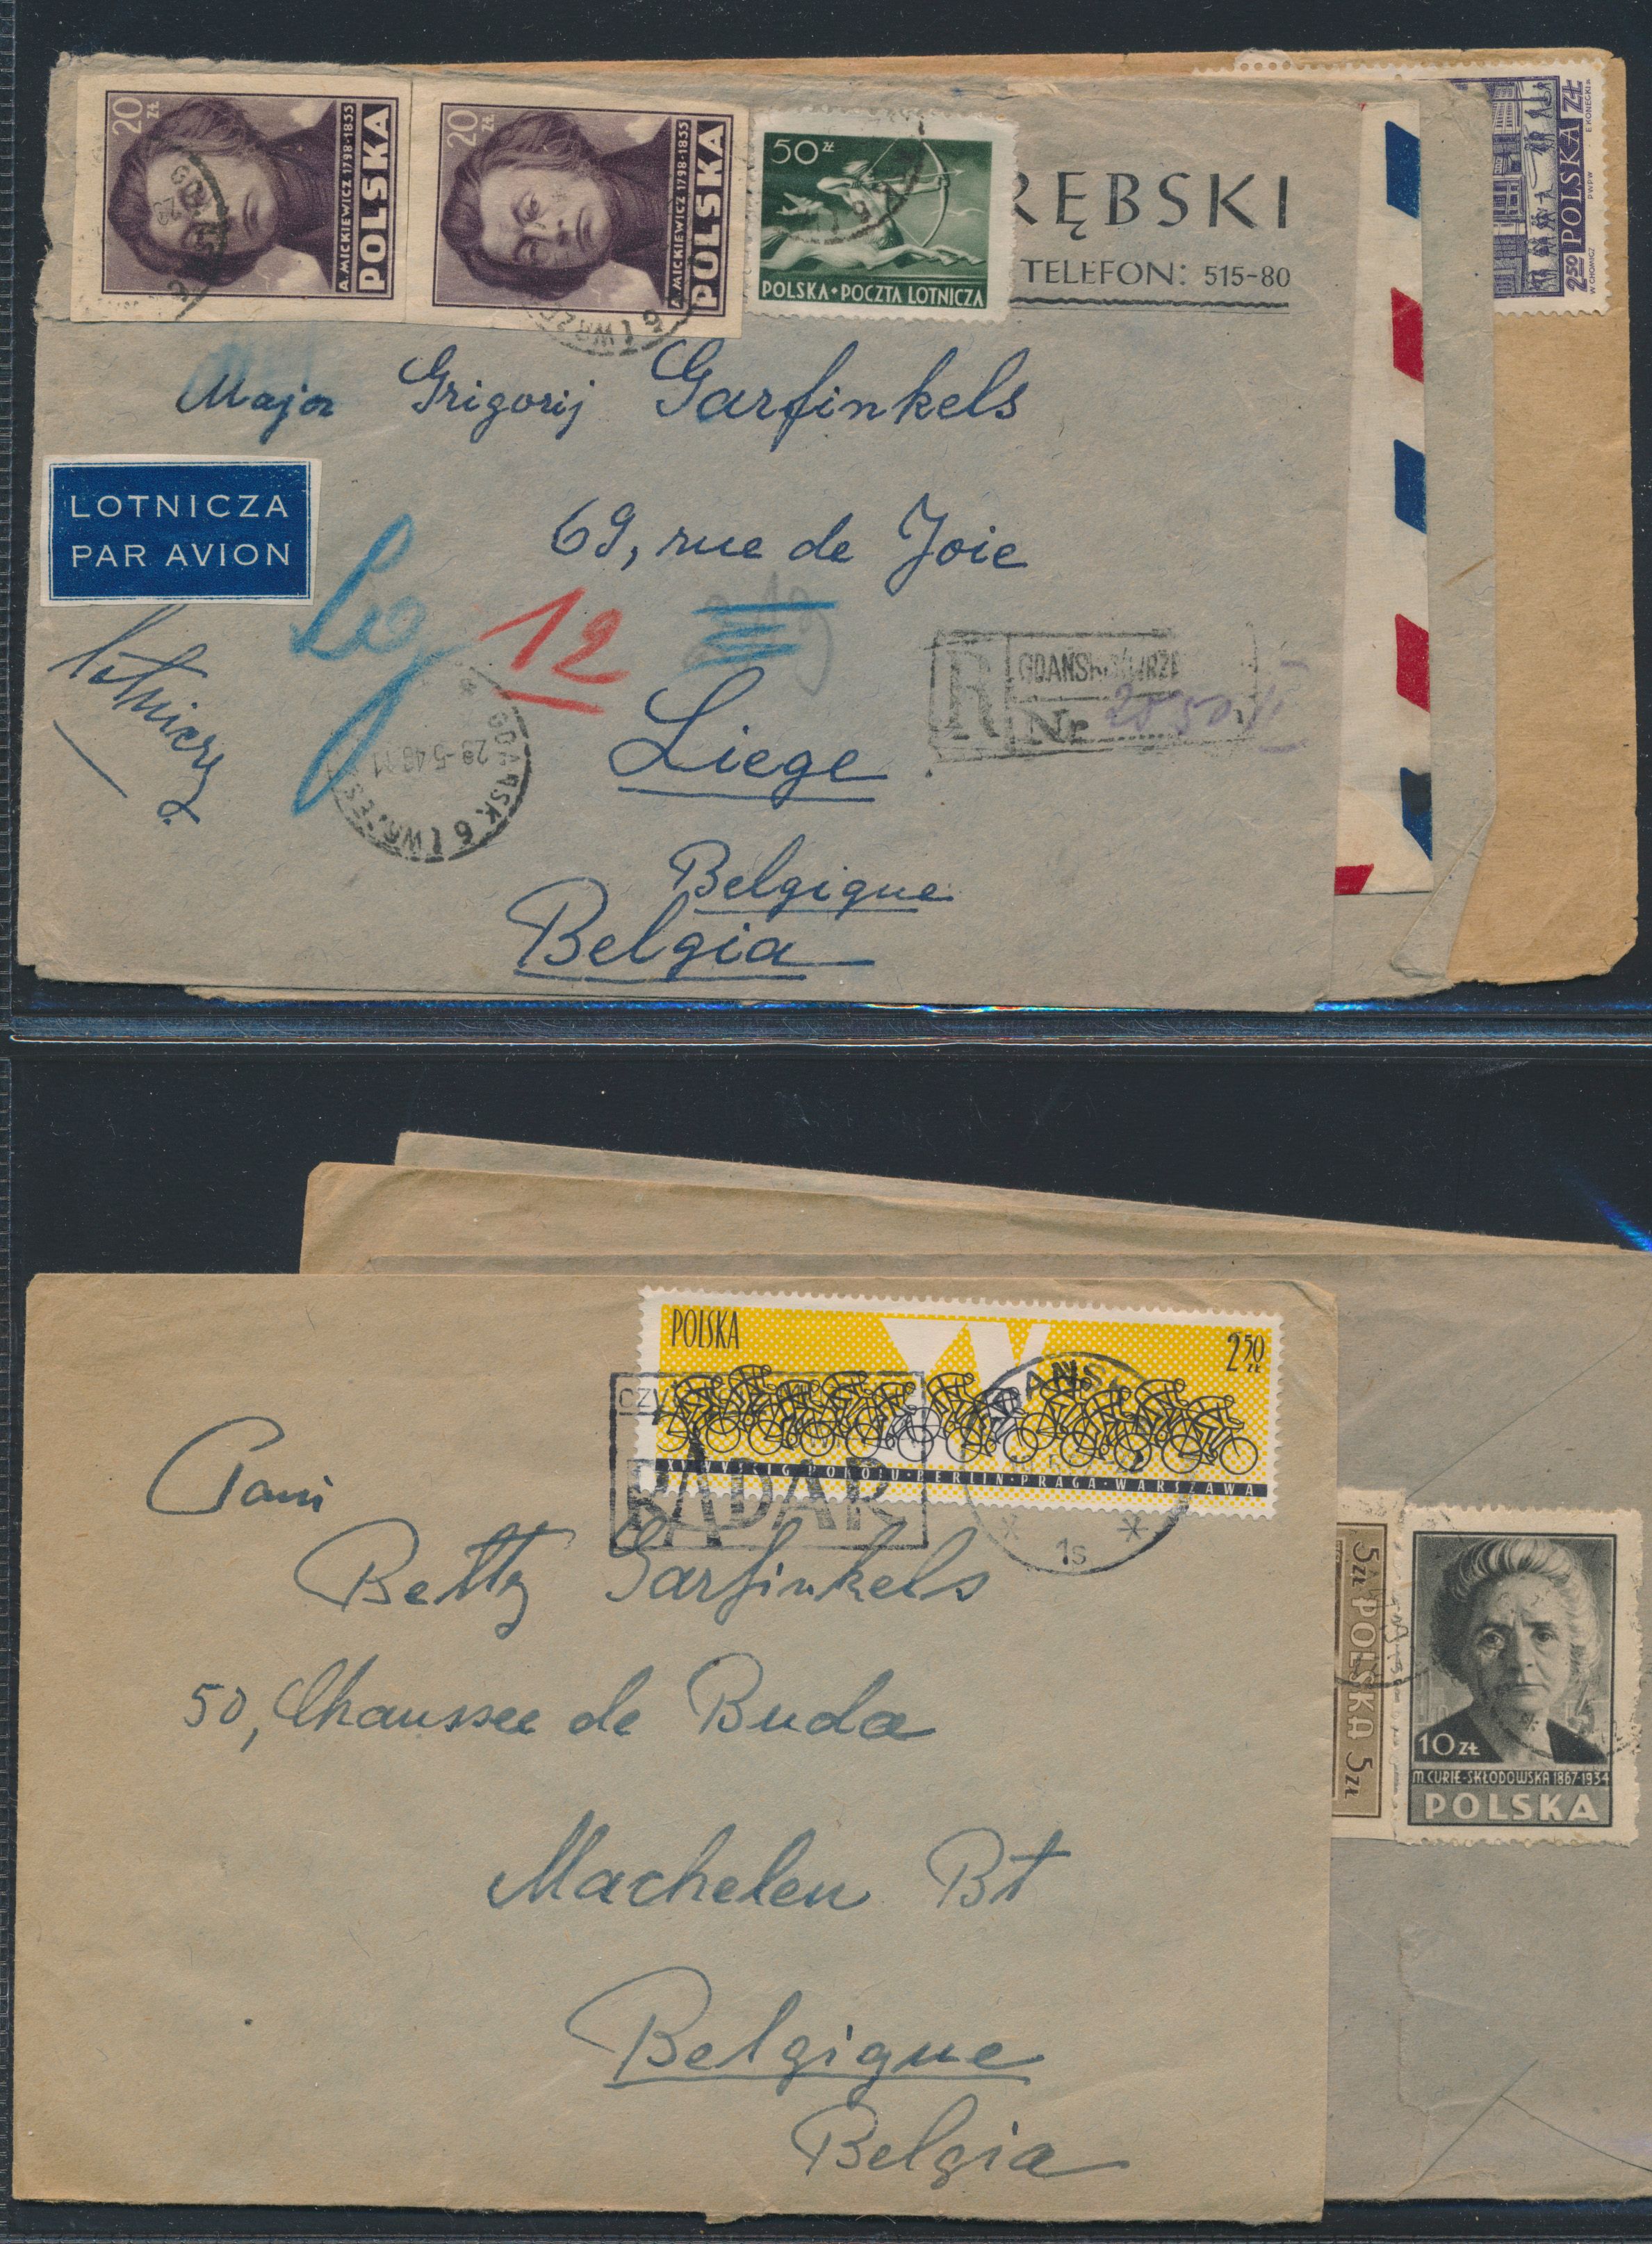 20 ZŁ
A. MICKIEWICZ 1798-1855
POLSKA
20 ZŁ
A. MICKIEWICZ 1798-1855
POLSKA
50 ZŁ
POLSKA • POCZTA LOTNICZA
RĘBSKI
TELEFON: 515-80
2 50 POLSKA ZŁ
W. CHOMICZ PWPW E. KONECKI
Major Grigorij Garfinkels
LOTNICZA
PAR AVION
69, rue de Joie
12
R
Nr
GDAŃSK 6
28-5 48 11
Liege
Belgique
Belgia
POLSKA
2 50 ZŁ
XV WYŚCIG POKOJU • BERLIN • PRAGA • WARSZAWA
RADAR
1s
Pani
Betty Garfinkels
50, Chaussee de Buda
Machelen Bt
Belgique
Belgia
5 ZŁ POLSKA 5 ZŁ
10 ZŁ
M. CURIE-SKŁODOWSKA 1867-1934
POLSKA